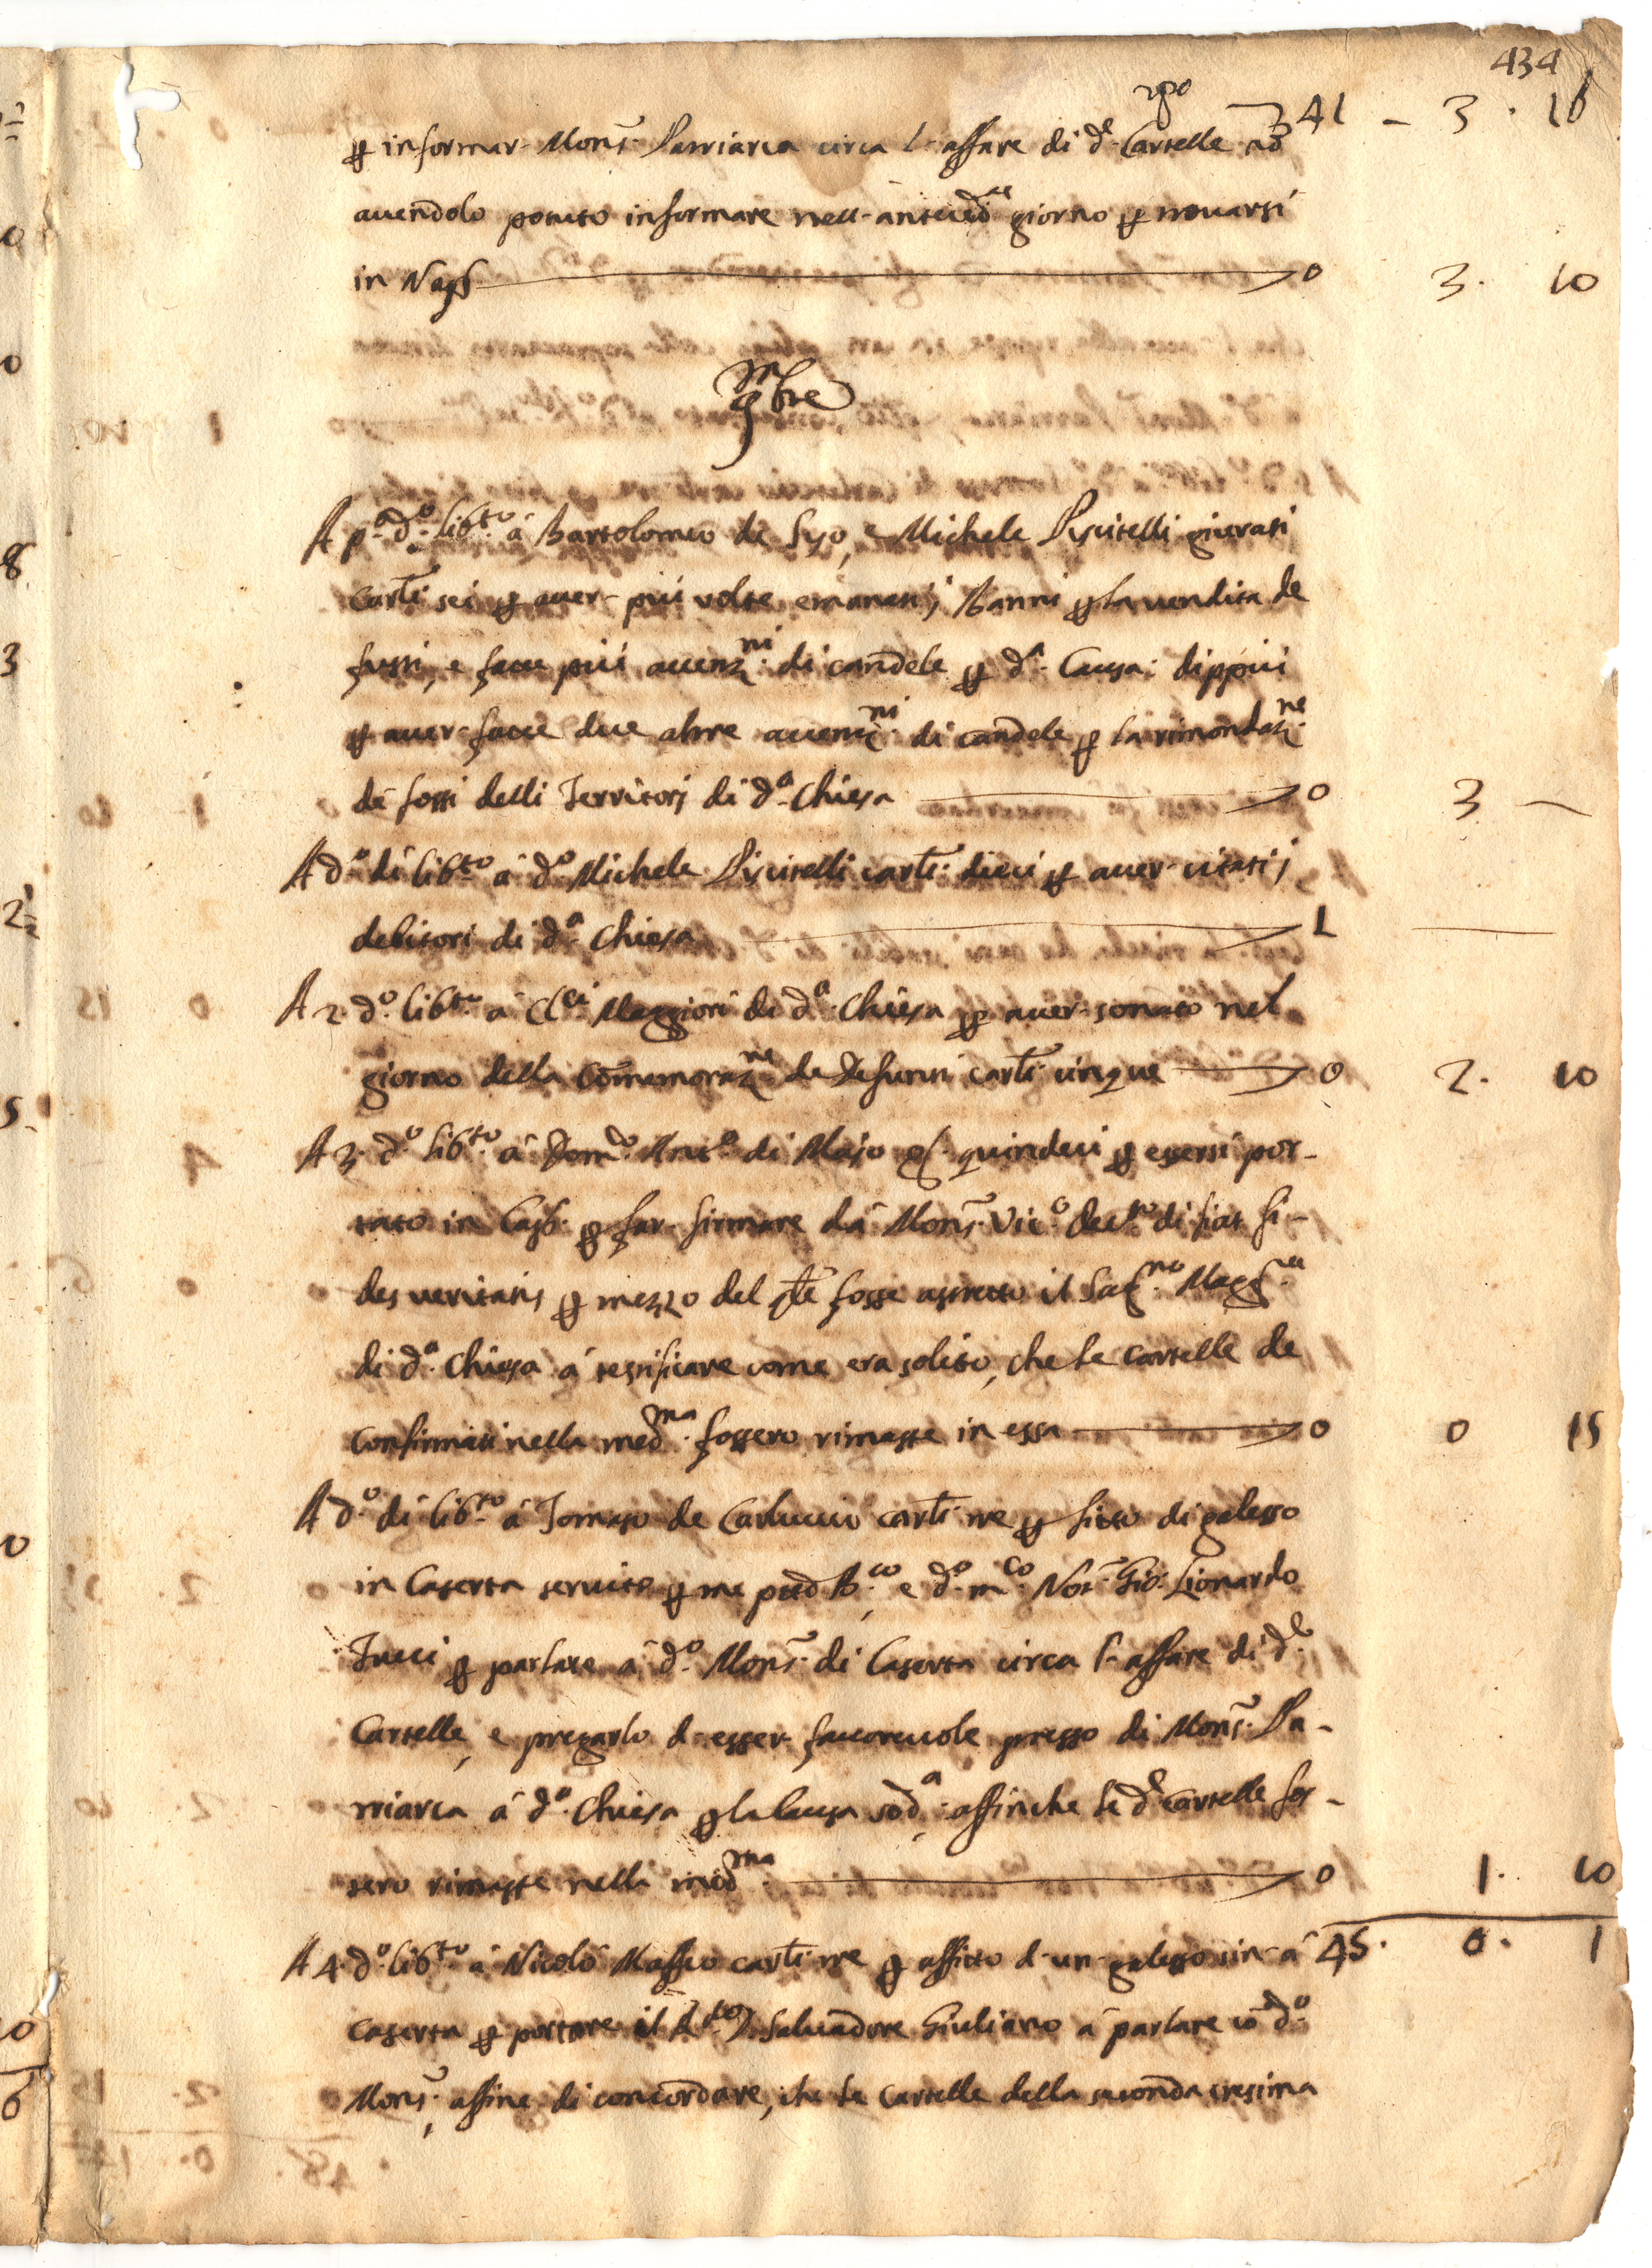 434
rpo 41 – 3 . 16
p informar Mons. Patriarca circa l'affare di de Cartelle nō
avendolo potuto informare nell'antecedte giorno p trovarsi
in Napl 0 3. 10
9mbre
A pa do libto à Bartolomeo de Siso, e Michele Piscitelli giurati
carli sei p aver più volte emanati i Banni p la vendita de
fussi, e fatte più accenzni di candele p da Causa: dippiù
p aver fatte due altre accenzni di candele p la rimondazne
de fossi delli Territorj di da Chiesa 0 3 –
A do dì libto à do Michele Piscitelli carli dieci p aver citati i
debitori di da Chiesa 1 —
A 2 do libto à Clci Maggiori di da Chiesa p aver sonato nel
giorno della Commemorazne de Defunti carli cinque 0 2. 10
A 3 do libto à Domco Anto di Majo gr. quindeci p essersi por-
tato in Casb. p far firmare dà Mons. Vico decto di fiat fi-
des veritatis p mezzo del qle fosse astretto il Sagno Magre
di da Chiesa à testificare come era solito, che le cartelle de
confirmati nella medma fossero rimaste in essa 0 0 15
A do dì libto à Tomaso de Carluccio carli tre p fitto di galesso
in Caserta servito p me pred B.co e do mco Not. Gio: Lionardo
Tucci p parlare à do Mons. di Caserta circa l'affare di de
Cartelle, e pregarlo d'esser favorevole presso di Mons. Pa-
triarca à da Chiesa p la Causa soda affinche le de Cartelle fos-
sero rimaste nella medma 0 1. 10
A 4 do libto à Nicolò Maffeo carli tre p affitto d'un galesso sin'à 45. 0. 1
Caserta p portare il Salvadore Giuliano à parlare cō do
Mons., affine di concordare, che le Cartelle della seconda cresima